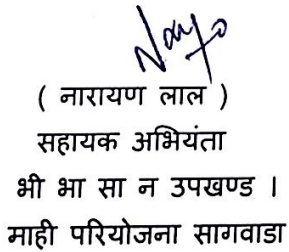 ( नारायण लाल )
सहायक अभियंता
भी भा सा न उपखण्ड ।
माही परियोजना सागवाडा